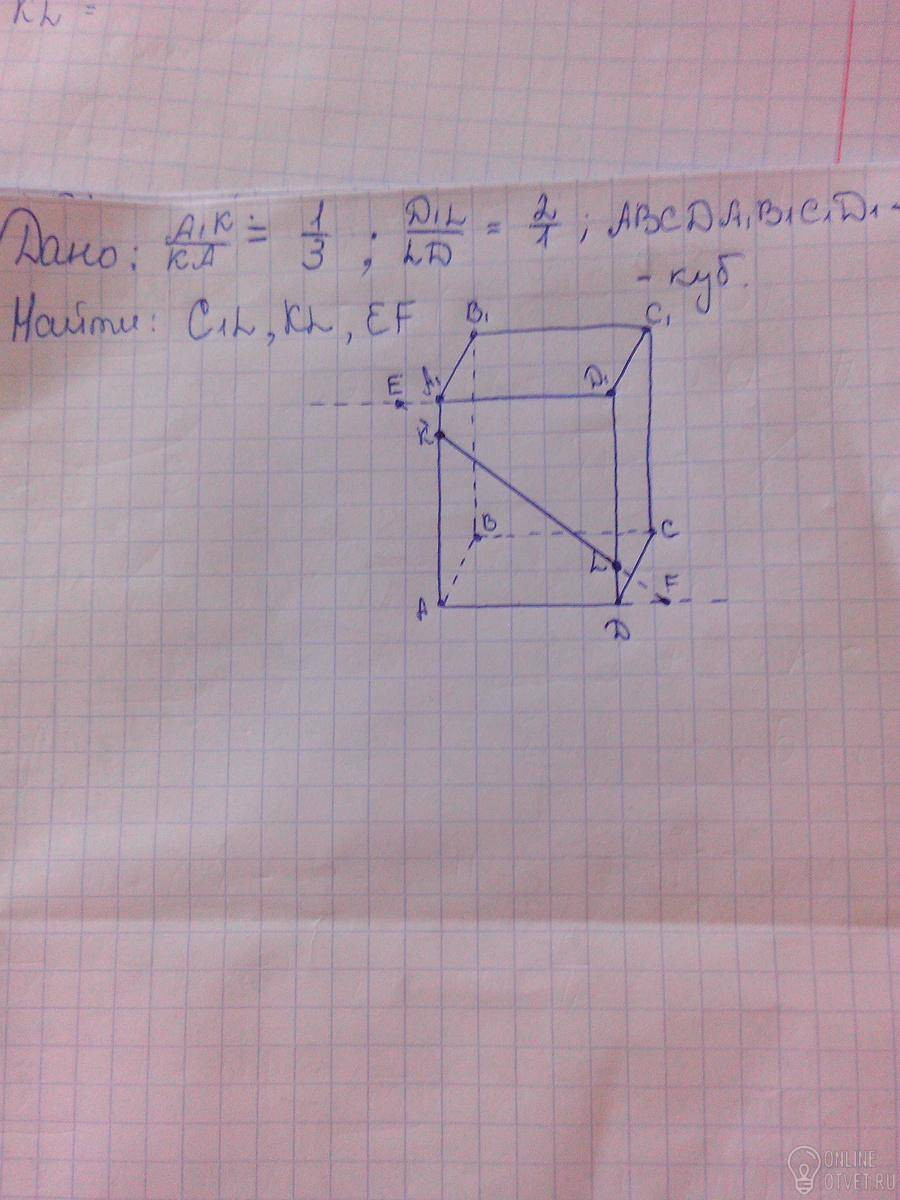 KL =
Дано: A₁K/KA = 1/3 ; D₁L/LD = 2/1 ; ABCDA₁B₁C₁D₁ -
- куб.
Найти: C₁L, KL, EF
B₁
C₁
E
A₁
D₁
K
B
C
L
F
A
D
ONLINE
OTVET.RU